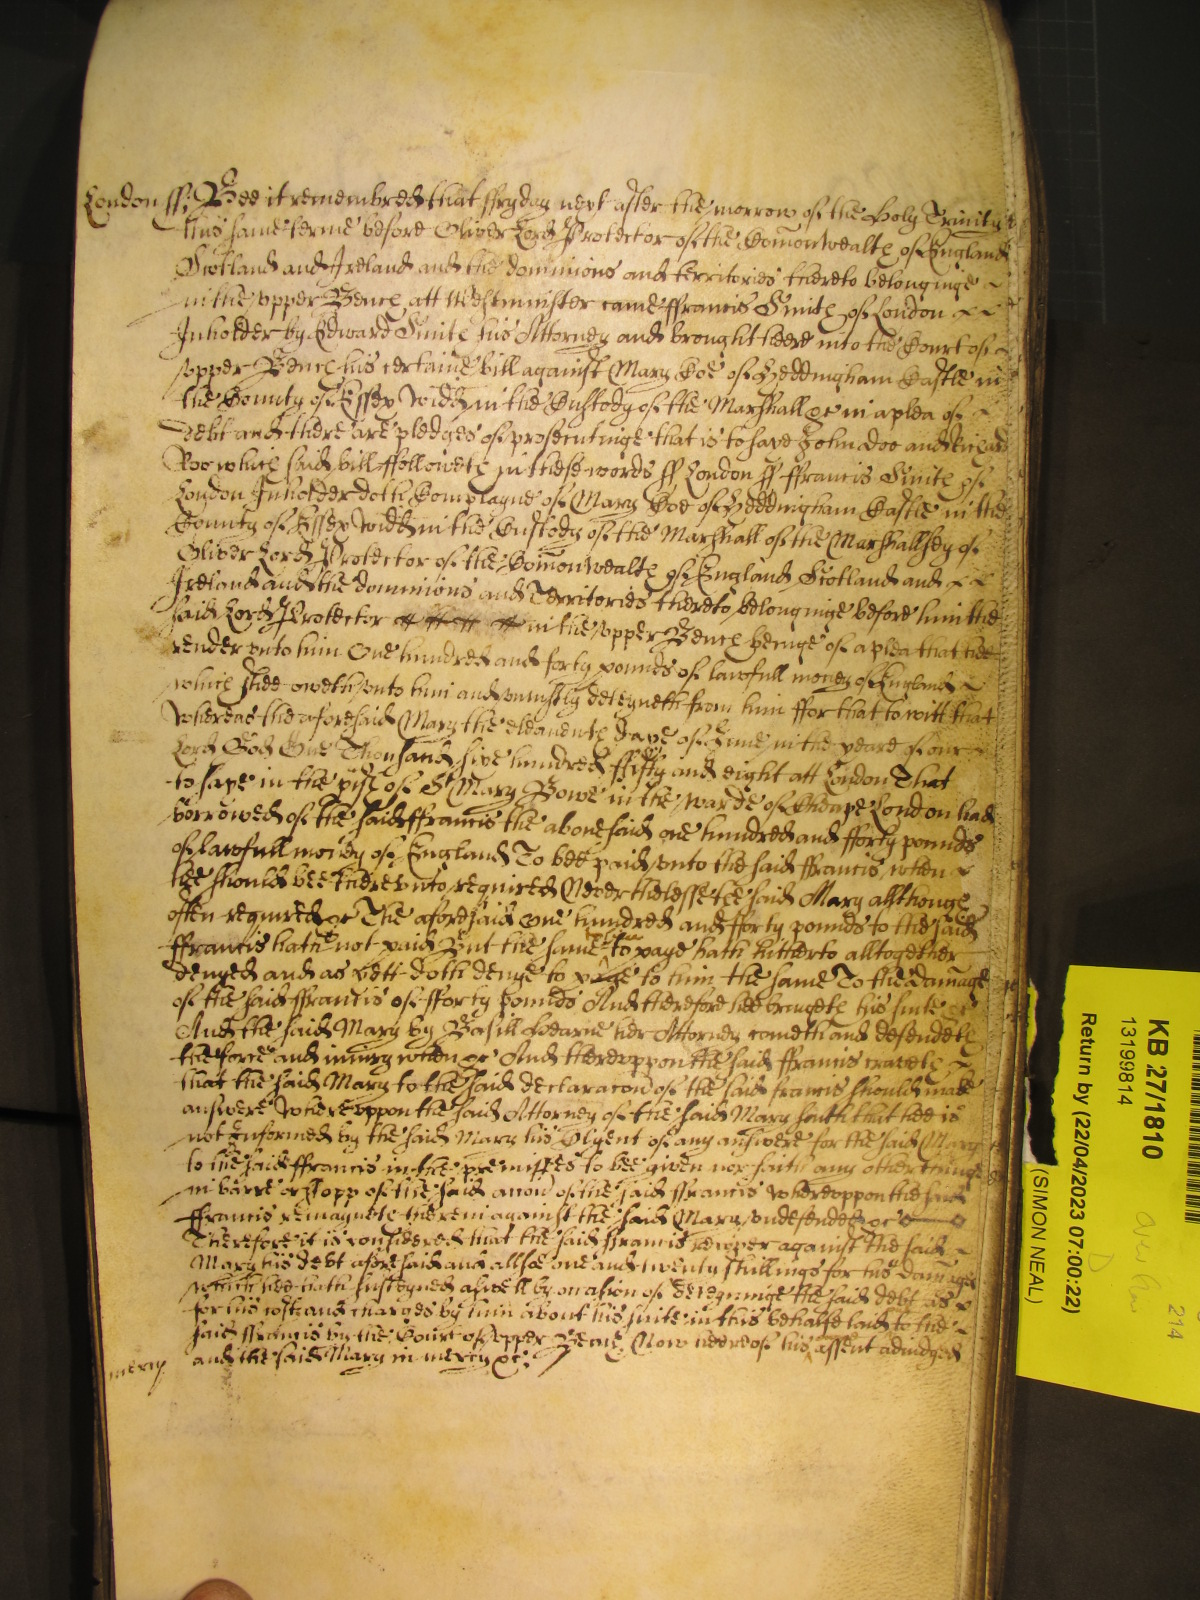 London ss: Bee it remembred that ffryday next after the morrow of the Holy Trinity
this same terme before Oliver Lord Protector of the Comonwealth of England
Scotland and Ireland and the dominions and territories thereto belonginge
in the upper Bench att Westminster came ffrancis Smith of London
Inholder by Edward Smith his Attorney and brought heere into the Court of
upper Bench his certaine bill against Mary Coe of Heddingham Castle in
the County of Essex Widd in the Custody of the Marshall &c in a plea of
debt and there are pledges of prosecutinge that is to saye John Doe and Richard
Roo which said bill ffolloweth in these words ss London ss ffrancis Smith of
London Inholder doth Complayne of Mary Coe of Heddingham Castle in the
County of Essex Widd in the Custody of the Marshall of the Marshallsey of
Oliver Lord Protector of the Comonwealth of England Scotland and
Ireland and the dominions and Territories thereto belonginge before him the
said Lord Protector in the upper Bench beinge of a plea that shee
render unto him One hundred and forty pounds of lawfull money of England
which shee oweth unto him and uniustly deteyneth from him ffor that to witt that
Whereas the aforesaid Mary the eleaventh daye of June in the yeare of our
Lord God One Thousand six hundred ffifty and eight att London That
to saye in the pish of St Mary Bowe in the warde of Cheape London had
borrowed of the said ffrancis the abovesaid one hundred and fforty pounds
of lawfull money of England To bee paid unto the said ffrancis when
shee should bee thereunto required Neverthelesse the said Mary allthough
often required &c The aforesaid One hundred and fforty pounds to the said
ffrancis hath not paid But the same to paye hath hitherto alltogether
denyed and as yett doth denye to paye to him the same To the damage
of the said ffrancis of fforty pounds And therefore hee bringeth his suite &c
And the said Mary by Basill Hearne her Attorney cometh and defendeth
the force and iniury when &c And thereuppon the said ffrancis craveth
that the said Mary to the said declaracon of the said francis should make
answere Whereuppon the said Attorney of the said Mary saith that hee is
not Informed by the said Mary his Clyent of any answere for the said Mary
to the said ffrancis in the premisses to bee given nor saith any other thinge
in barre or stopp of the said accon of the said ffrancis Whereuppon the said
ffrancis remayneth therein against the said Mary undefended &c
Therefore it is considered that the said ffrancis recover against the said
Mary his debt aforesaid and allsoe one and twenty shillings for his damages
which hee hath susteyned aswell by occasion of deteyninge the said debt as
for his costs and charges by him about his suite in this behalfe laid to the
said ffrancis by the Court of upper Bench Now heere of his assent adiudged
mercy and the said Mary in mercy &c;
KB 27/1810
13199814
Return by (22/04/2023 07:00:22)
(SIMON NEAL)
214